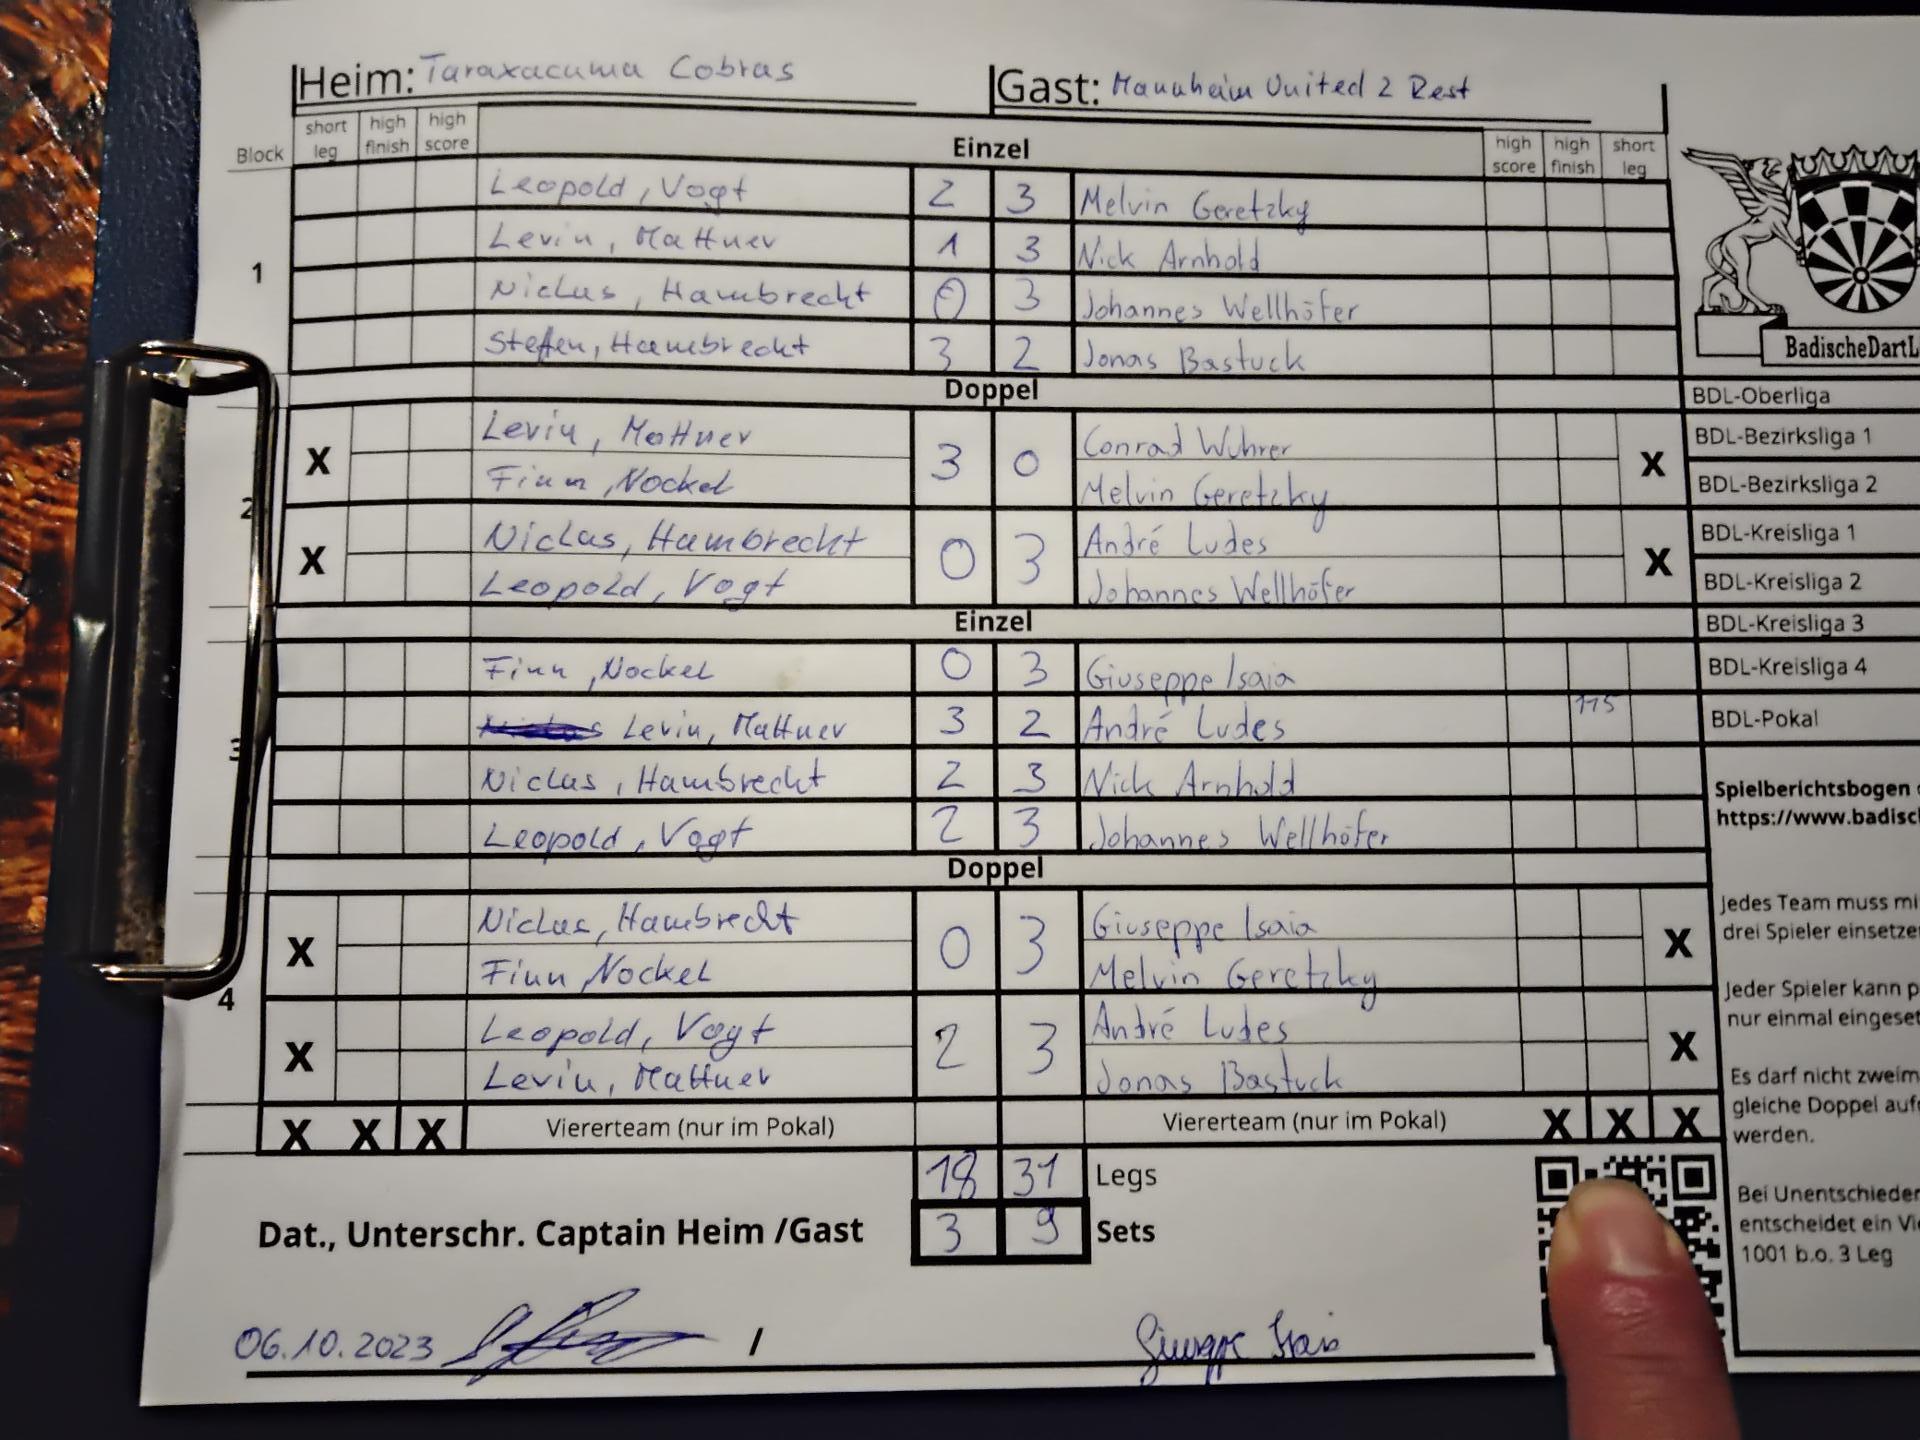 Heim: Taraxacuma Cobras Gast: Mannheim United 2 Rest
Block short leg high finish high score Einzel high score high finish short leg
1
Leopold, Vogt 2 3 Melvin Geretzky
Levin, Mattner 1 3 Nick Arnhold
Niclas, Hambrecht 0 3 Johannes Wellhöfer
Steffen, Hambrecht 3 2 Jonas Bastuck
BadischeDartL
Doppel
2
X Levin, Mattner 3 0 Conrad Wuhrer X
Finn, Nockel Melvin Geretzky
X Niclas, Hambrecht 0 3 André Ludes X
Leopold, Vogt Johannes Wellhöfer
Einzel
3
Finn, Nockel 0 3 Giuseppe Isaia
Levin, Mattner 3 2 André Ludes 115
Niclas, Hambrecht 2 3 Nick Arnhold
Leopold, Vogt 2 3 Johannes Wellhöfer
Doppel
4
X Niclas, Hambrecht 0 3 Giuseppe Isaia X
Finn Nockel Melvin Geretzky
X Leopold, Vogt 2 3 André Ludes X
Levin, Mattner Jonas Bastuck
X X X Viererteam (nur im Pokal) Viererteam (nur im Pokal) X X X
18 31 Legs
Dat., Unterschr. Captain Heim /Gast 3 9 Sets
06.10.2023 / Giuseppe Isaia
BDL-Oberliga
BDL-Bezirksliga 1
BDL-Bezirksliga 2
BDL-Kreisliga 1
BDL-Kreisliga 2
BDL-Kreisliga 3
BDL-Kreisliga 4
BDL-Pokal
Spielberichtsbogen
https://www.badisc
Jedes Team muss mi
drei Spieler einsetze
Jeder Spieler kann p
nur einmal eingeset
Es darf nicht zweim
gleiche Doppel aufg
werden.
Bei Unentschieden
entscheidet ein Vi
1001 b.o. 3 Leg